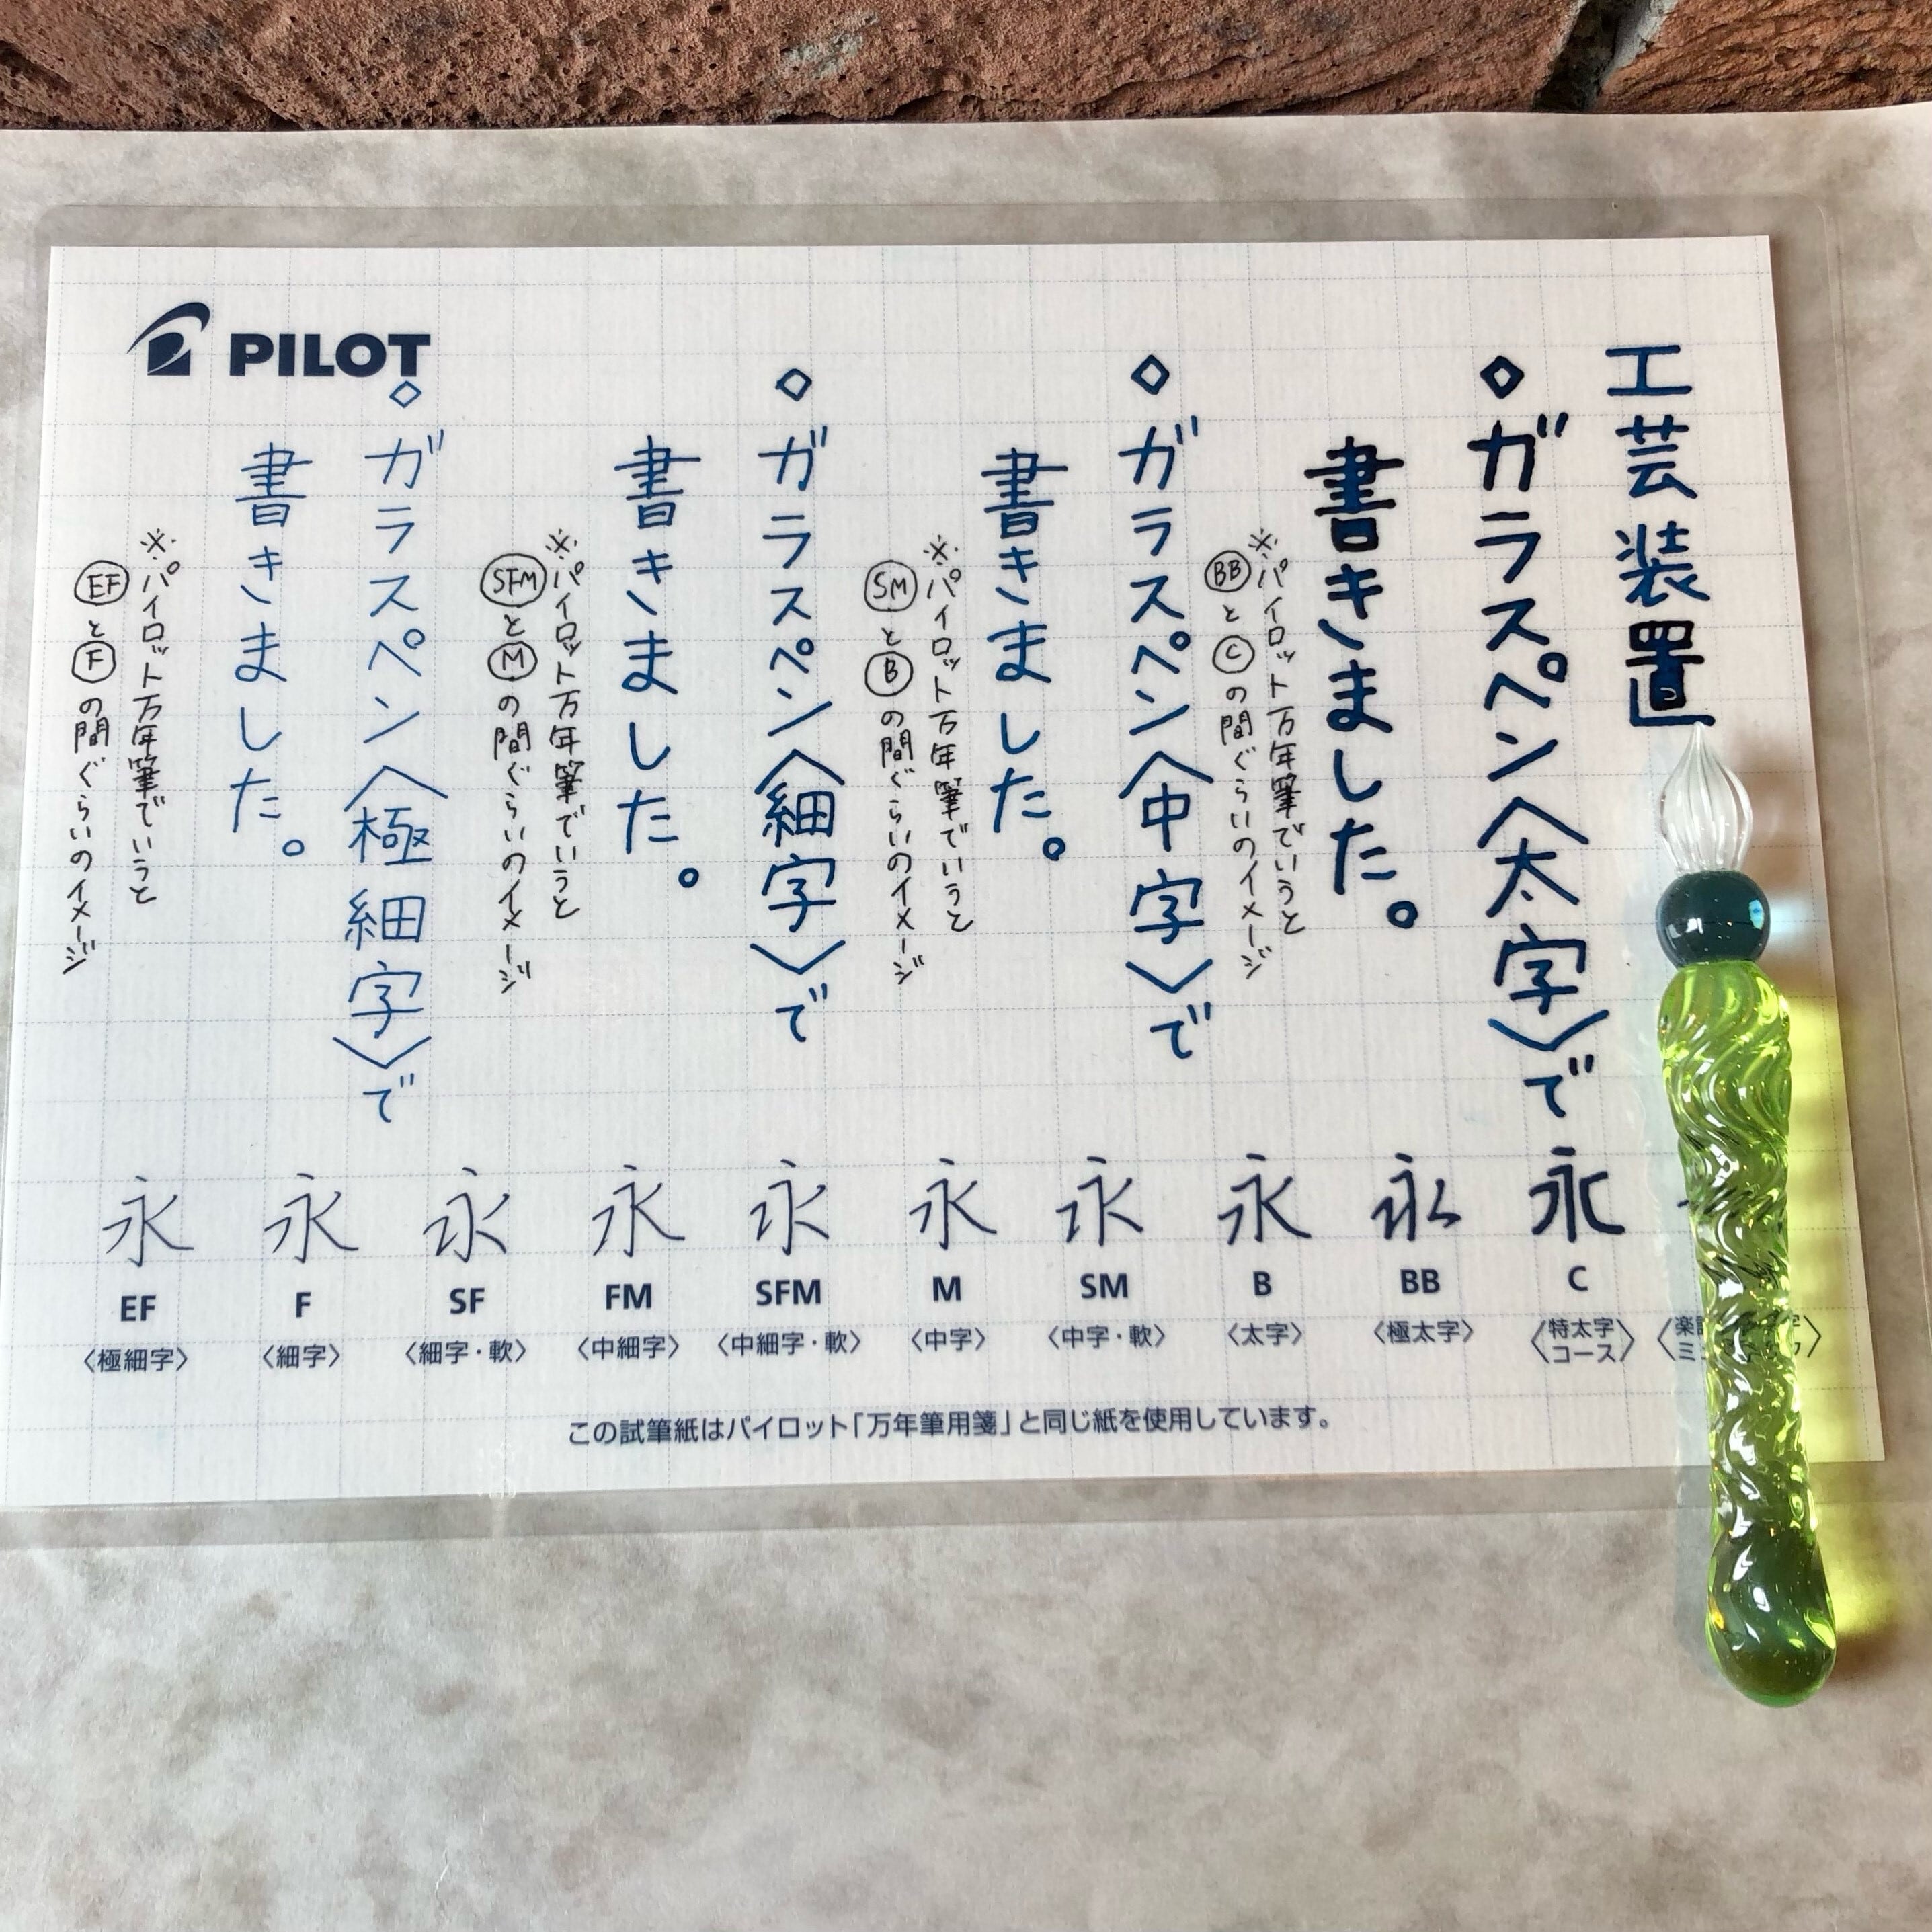 PILOT
工芸装置
◇ガラスペン〈太字〉で
書きました。
※パイロット万年筆でいうと
BBとCの間ぐらいのイメージ
◇ガラスペン〈中字〉で
書きました。
※パイロット万年筆でいうと
SMとBの間ぐらいのイメージ
◇ガラスペン〈細字〉で
書きました。
※パイロット万年筆でいうと
SFMとMの間ぐらいのイメージ
◇ガラスペン〈極細字〉で
書きました。
※パイロット万年筆でいうと
EFとFの間ぐらいのイメージ
永 永 永 永 永 永 永 永 永 永
EF F SF FM SFM M SM B BB C
〈極細字〉 〈細字〉 〈細字・軟〉 〈中細字〉 〈中細字・軟〉 〈中字〉 〈中字・軟〉 〈太字〉 〈極太字〉 〈特太字
コース〉
この試筆紙はパイロット「万年筆用箋」と同じ紙を使用しています。